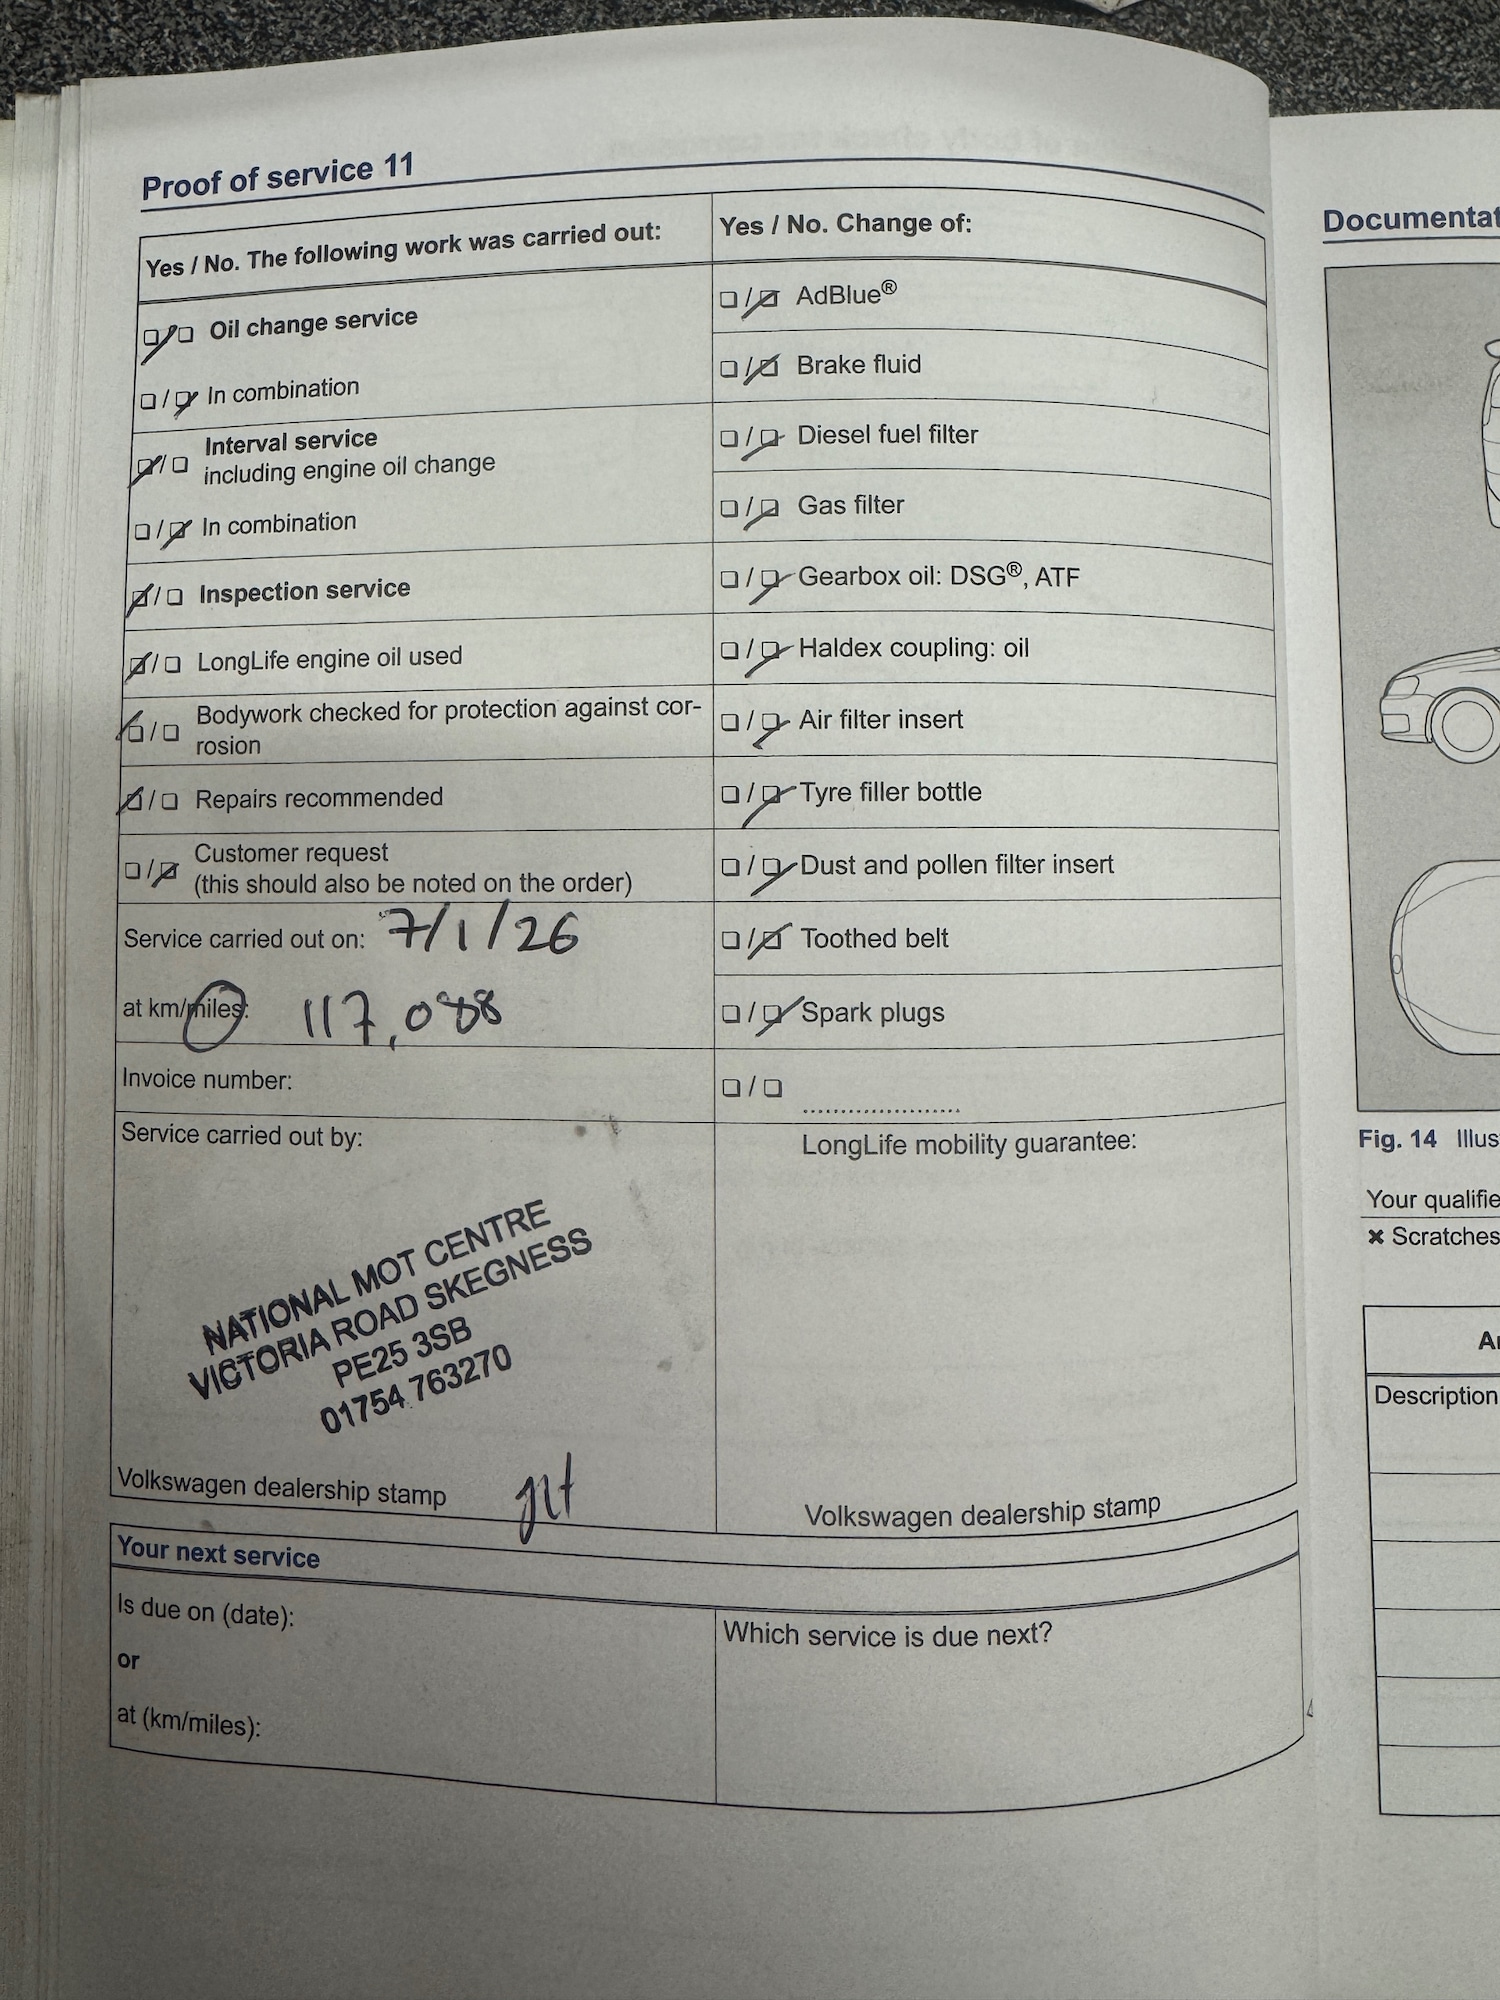 Proof of service 11
Yes / No. The following work was carried out:
☑/☐ Oil change service
☐/☑ In combination
☑/☐ Interval service
including engine oil change
☐/☑ In combination
☑/☐ Inspection service
☑/☐ LongLife engine oil used
☑/☐ Bodywork checked for protection against cor-
rosion
☑/☐ Repairs recommended
☐/☑ Customer request
(this should also be noted on the order)
Service carried out on: 7/1/26
at km/miles: 117,088
Invoice number:
Service carried out by:
NATIONAL MOT CENTRE
VICTORIA ROAD SKEGNESS
PE25 3SB
01754 763270
Volkswagen dealership stamp
Yes / No. Change of:
☐/☑ AdBlue®
☐/☑ Brake fluid
☐/☑ Diesel fuel filter
☐/☑ Gas filter
☐/☑ Gearbox oil: DSG®, ATF
☐/☑ Haldex coupling: oil
☐/☑ Air filter insert
☐/☑ Tyre filler bottle
☐/☑ Dust and pollen filter insert
☐/☑ Toothed belt
☐/☑ Spark plugs
☐/☐
LongLife mobility guarantee:
Volkswagen dealership stamp
Your next service
Is due on (date):
or
at (km/miles):
Which service is due next?
Fig. 14
Your
✖ Scratches
Description